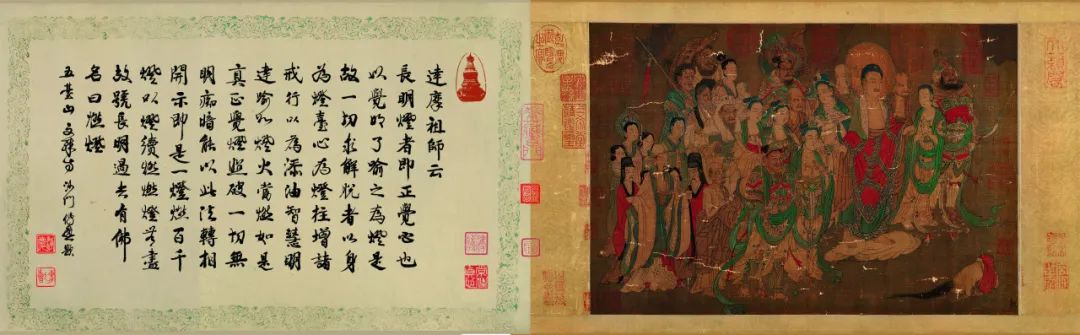 達摩祖師云
長明燈者即正覺心也
以覺明了喻之為燈是
故一切求解脫者以身
為燈臺心為燈柱增諸
戒行以為添油智慧明
達喻如燈火當燃如是
真正覺燈照破一切無
明痴暗能以此法轉相
開示即是一燈燃百千
燈以燈續燃燃燈無盡
故號長明過去有佛
名曰燃燈
五臺山文殊寺沙門